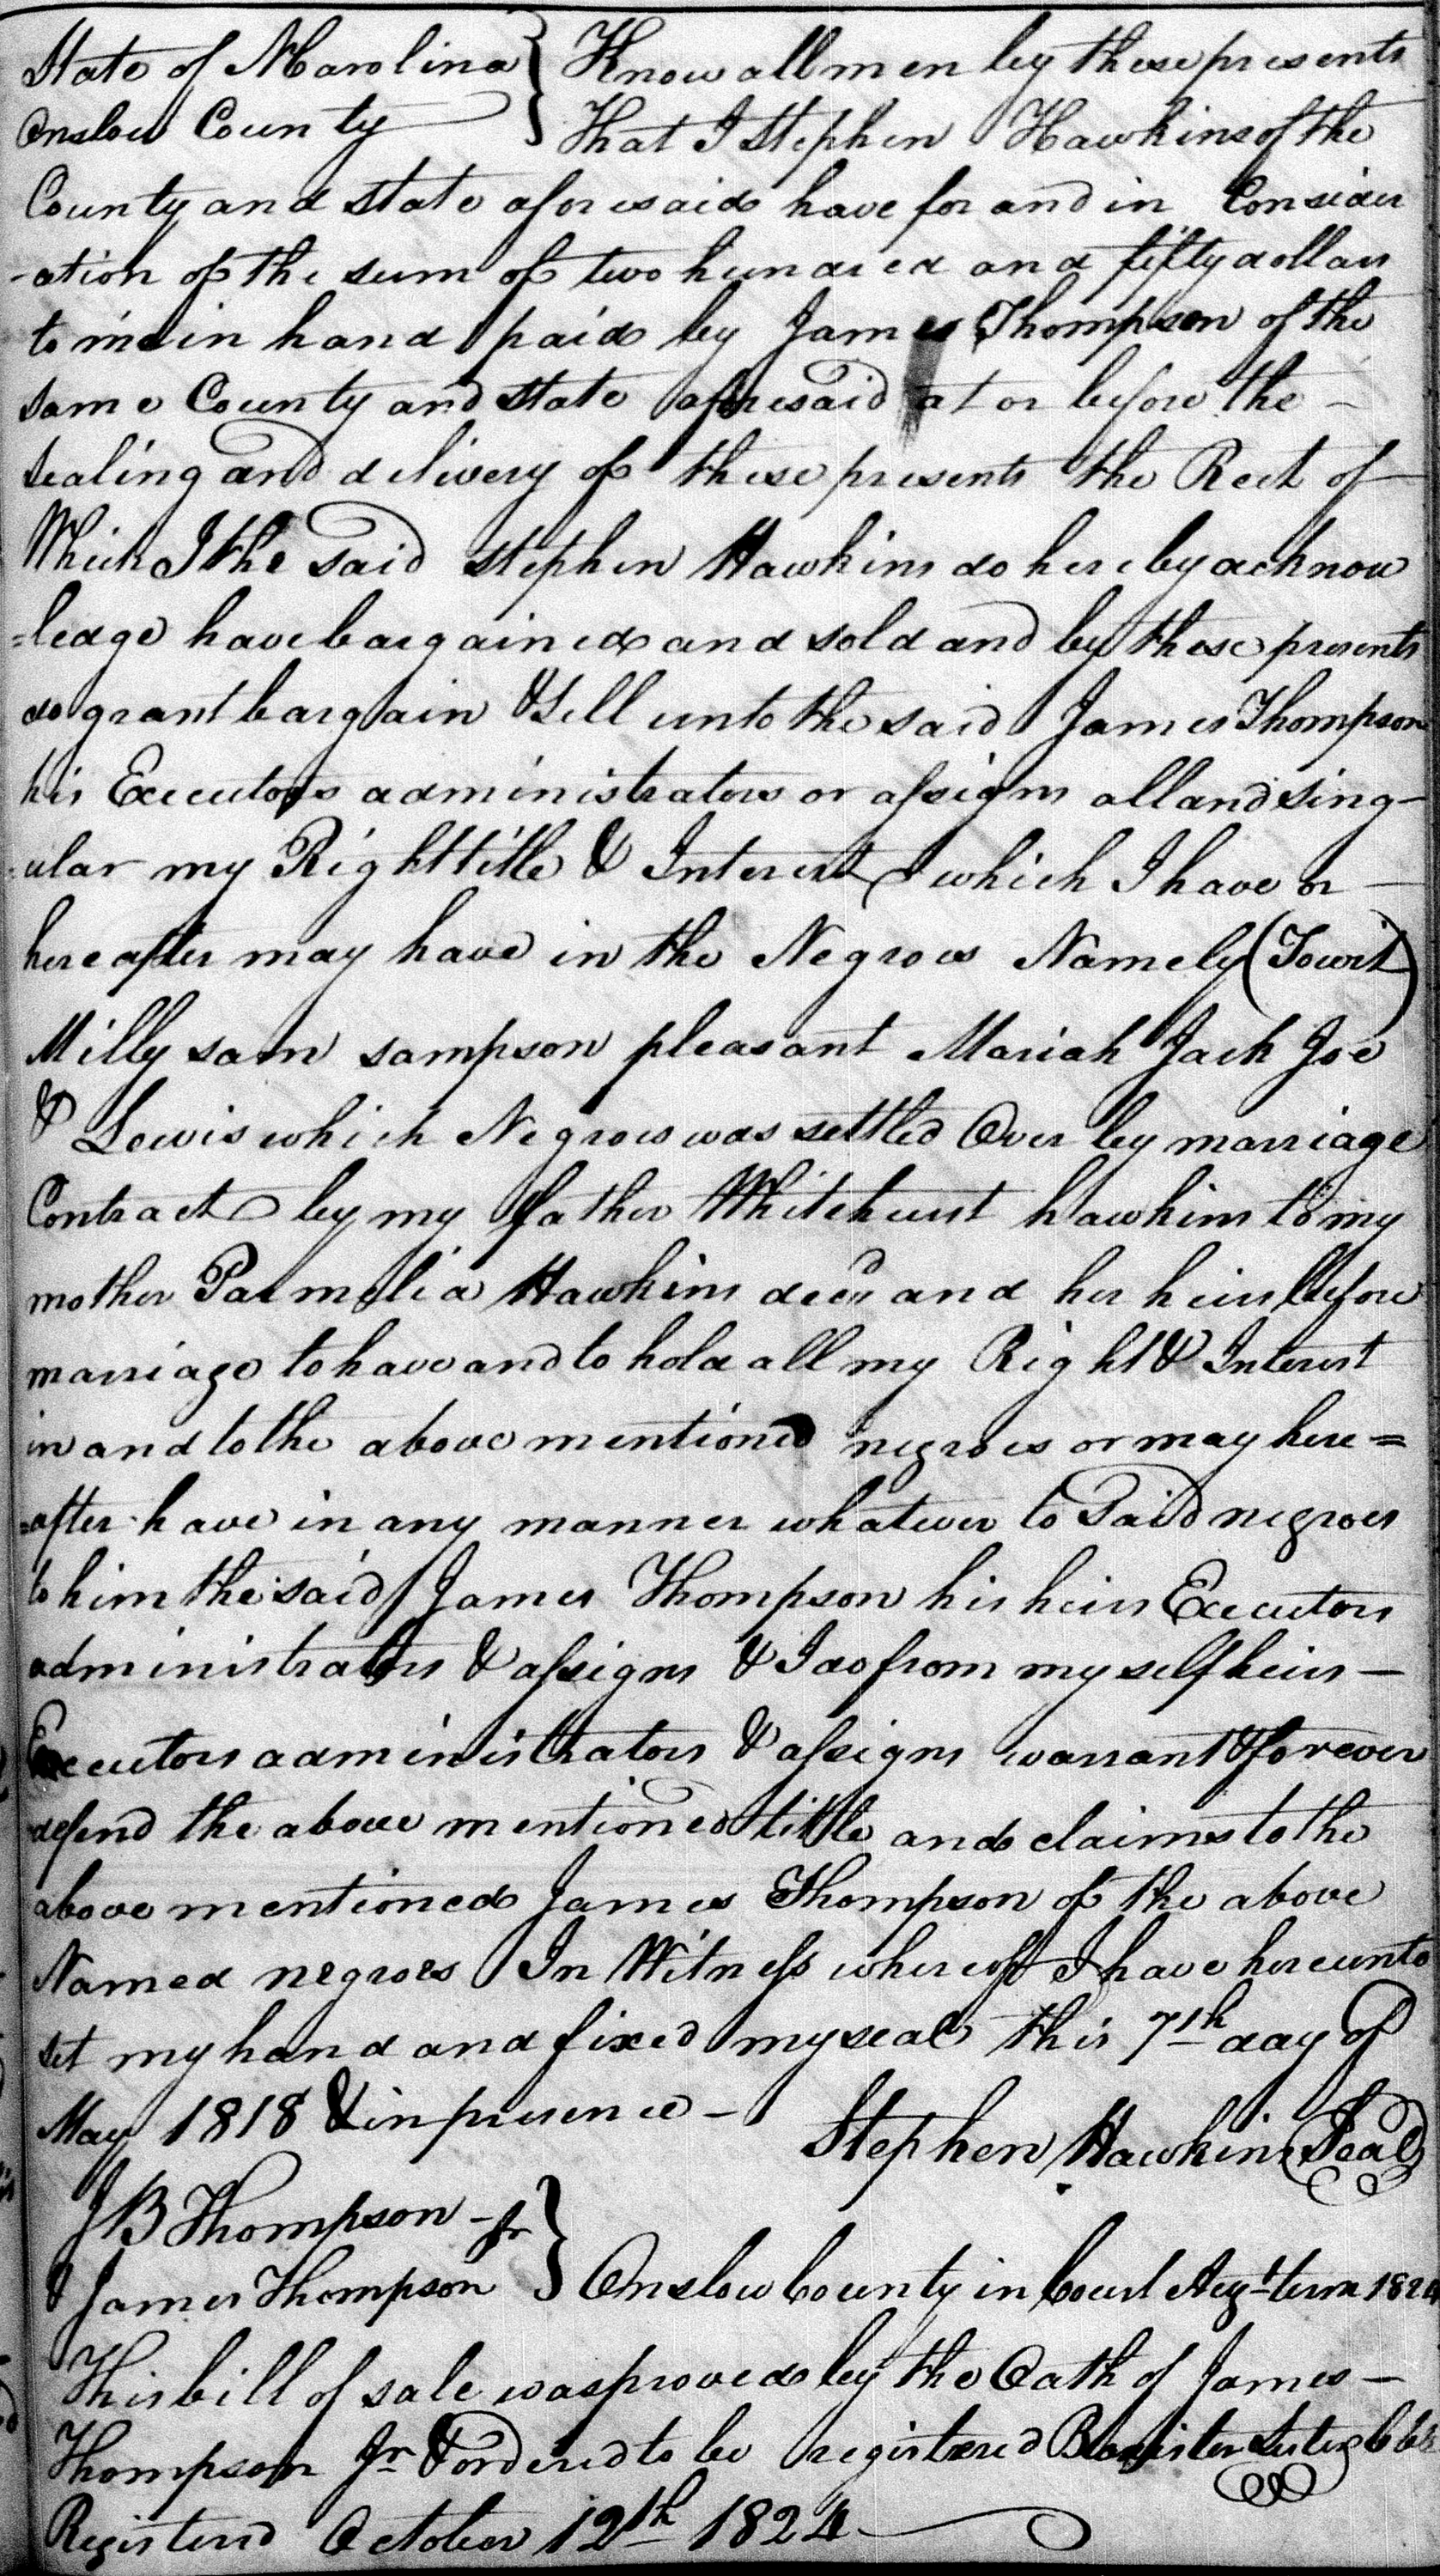 State of N Carolina } Know all men by these presents
Onslow County } That I Stephen Hawkins of the
County and state aforesaid have for and in Consider
-ation of the sum of two hundred and fifty dollars
to me in hand paid by James Thompson of the
same County and state aforesaid at or before the -
sealing and delivery of these presents the Rect of
Which I the said stephen Hawkins do hereby acknow
=ledge have bargained and sold and by these presents
do grant bargain & Sell unto the said James Thompson
his Executors administrators or assigns all and sing-
-ular my Right title & Interest which I have or -
hereafter may have in the Negroes Namely (Towit)
Milly sam sampson pleasant Mariah Jack Joe
& Lewis which Negroes was settled Over by marriage
Contract by my father Whitehurst hawkins to my
mother Parmelia Hawkins decd and her heirs before
marriage to have and to hold all my Right & Interest
in and to the above mentioned negroes or may here=
=after have in any manner whatever to Said negroes
to him the said James Thompson his heirs Executors
administrators & assigns & I do from my self heirs -
Executors administrators & assigns warrant & forever
defend the above mentioned tittle and claims to the
above mentioned James Thompson of the above
Named negroes In Witness whereof I have hereunto
set my hand and fixed my seal this 7th day of
May 1818 & in presence - Stephen Hawkins (Seal)
J B Thompson - Jr }
& James Thompson } Onslow County in Court Augt term 1824
This bill of sale was proved by the Oath of James -
Thompson Jr & ordered to be registered Lester Clk
Registered October 12th 1824